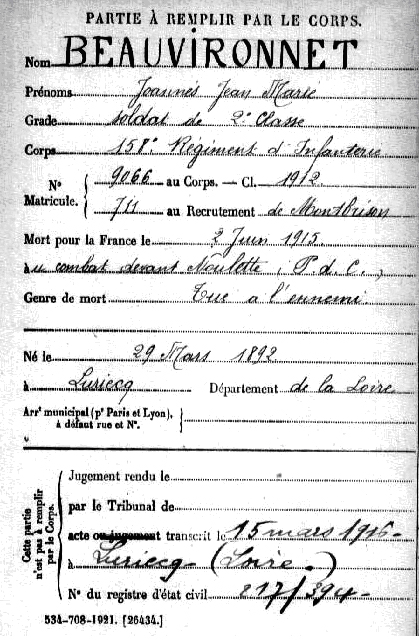 PARTIE À REMPLIR PAR LE CORPS.
Nom BEAUVIRONNET
Prénoms Joannès Jean Marie
Grade soldat de 2e Classe
Corps 158e Régiment d'Infanterie
N° Matricule. 9066 au Corps. — Cl. 1912.
711 au Recrutement de Montbrison
Mort pour la France le 2 Juin 1915.
au combat devant Noulette (P. d. C.)
Genre de mort Tué à l'ennemi.
Né le 29 Mars 1892
à Luriecq Département de la Loire
Arrt municipal (pr Paris et Lyon), à défaut rue et N°.
Cette partie n'est pas à remplir par le Corps.
Jugement rendu le
par le Tribunal de
acte ou jugement transcrit le 15 mars 1916
à Luriecq (Loire.)
N° du registre d'état civil 217/394
534-708-1921. [26434.]